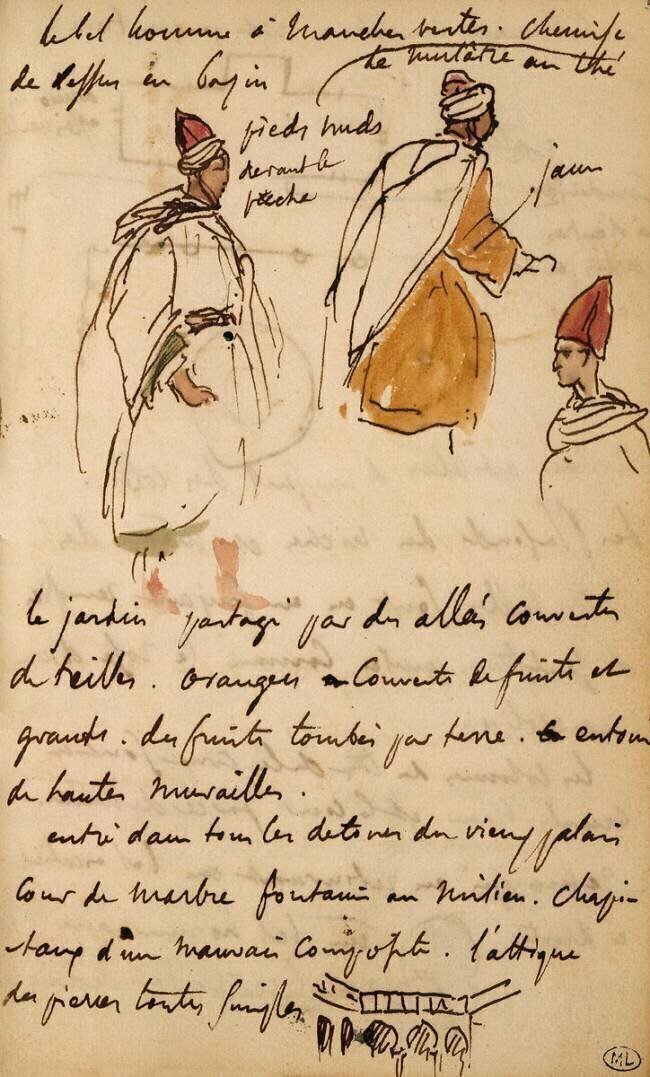 le bel homme à manches vertes. chemise
de mulâtre au thé
de dessus en bazin
pieds nuds
devant le
jaune
le jardin partagé par des allées couvertes
de treilles. orangers couverts de fruits et
grands. des fruits tombés par terre. entouré
de hautes murailles.
entré dans tous les détours du vieux palais
cour de marbre fontaine au milieu. chapi-
taux d'un mauvais composite. l'attique
des pierres toutes simples
ML